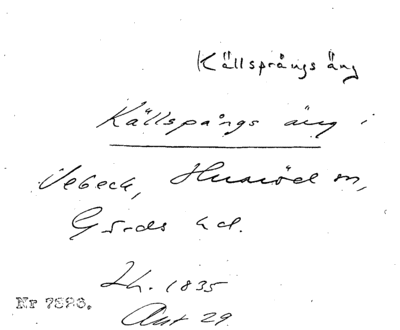 Källsprångs äng
Källspångs äng i
Vebeck, Huaröd sn,
Gärds hd.
Lh. 1835
Akt 29
Nr 7823.